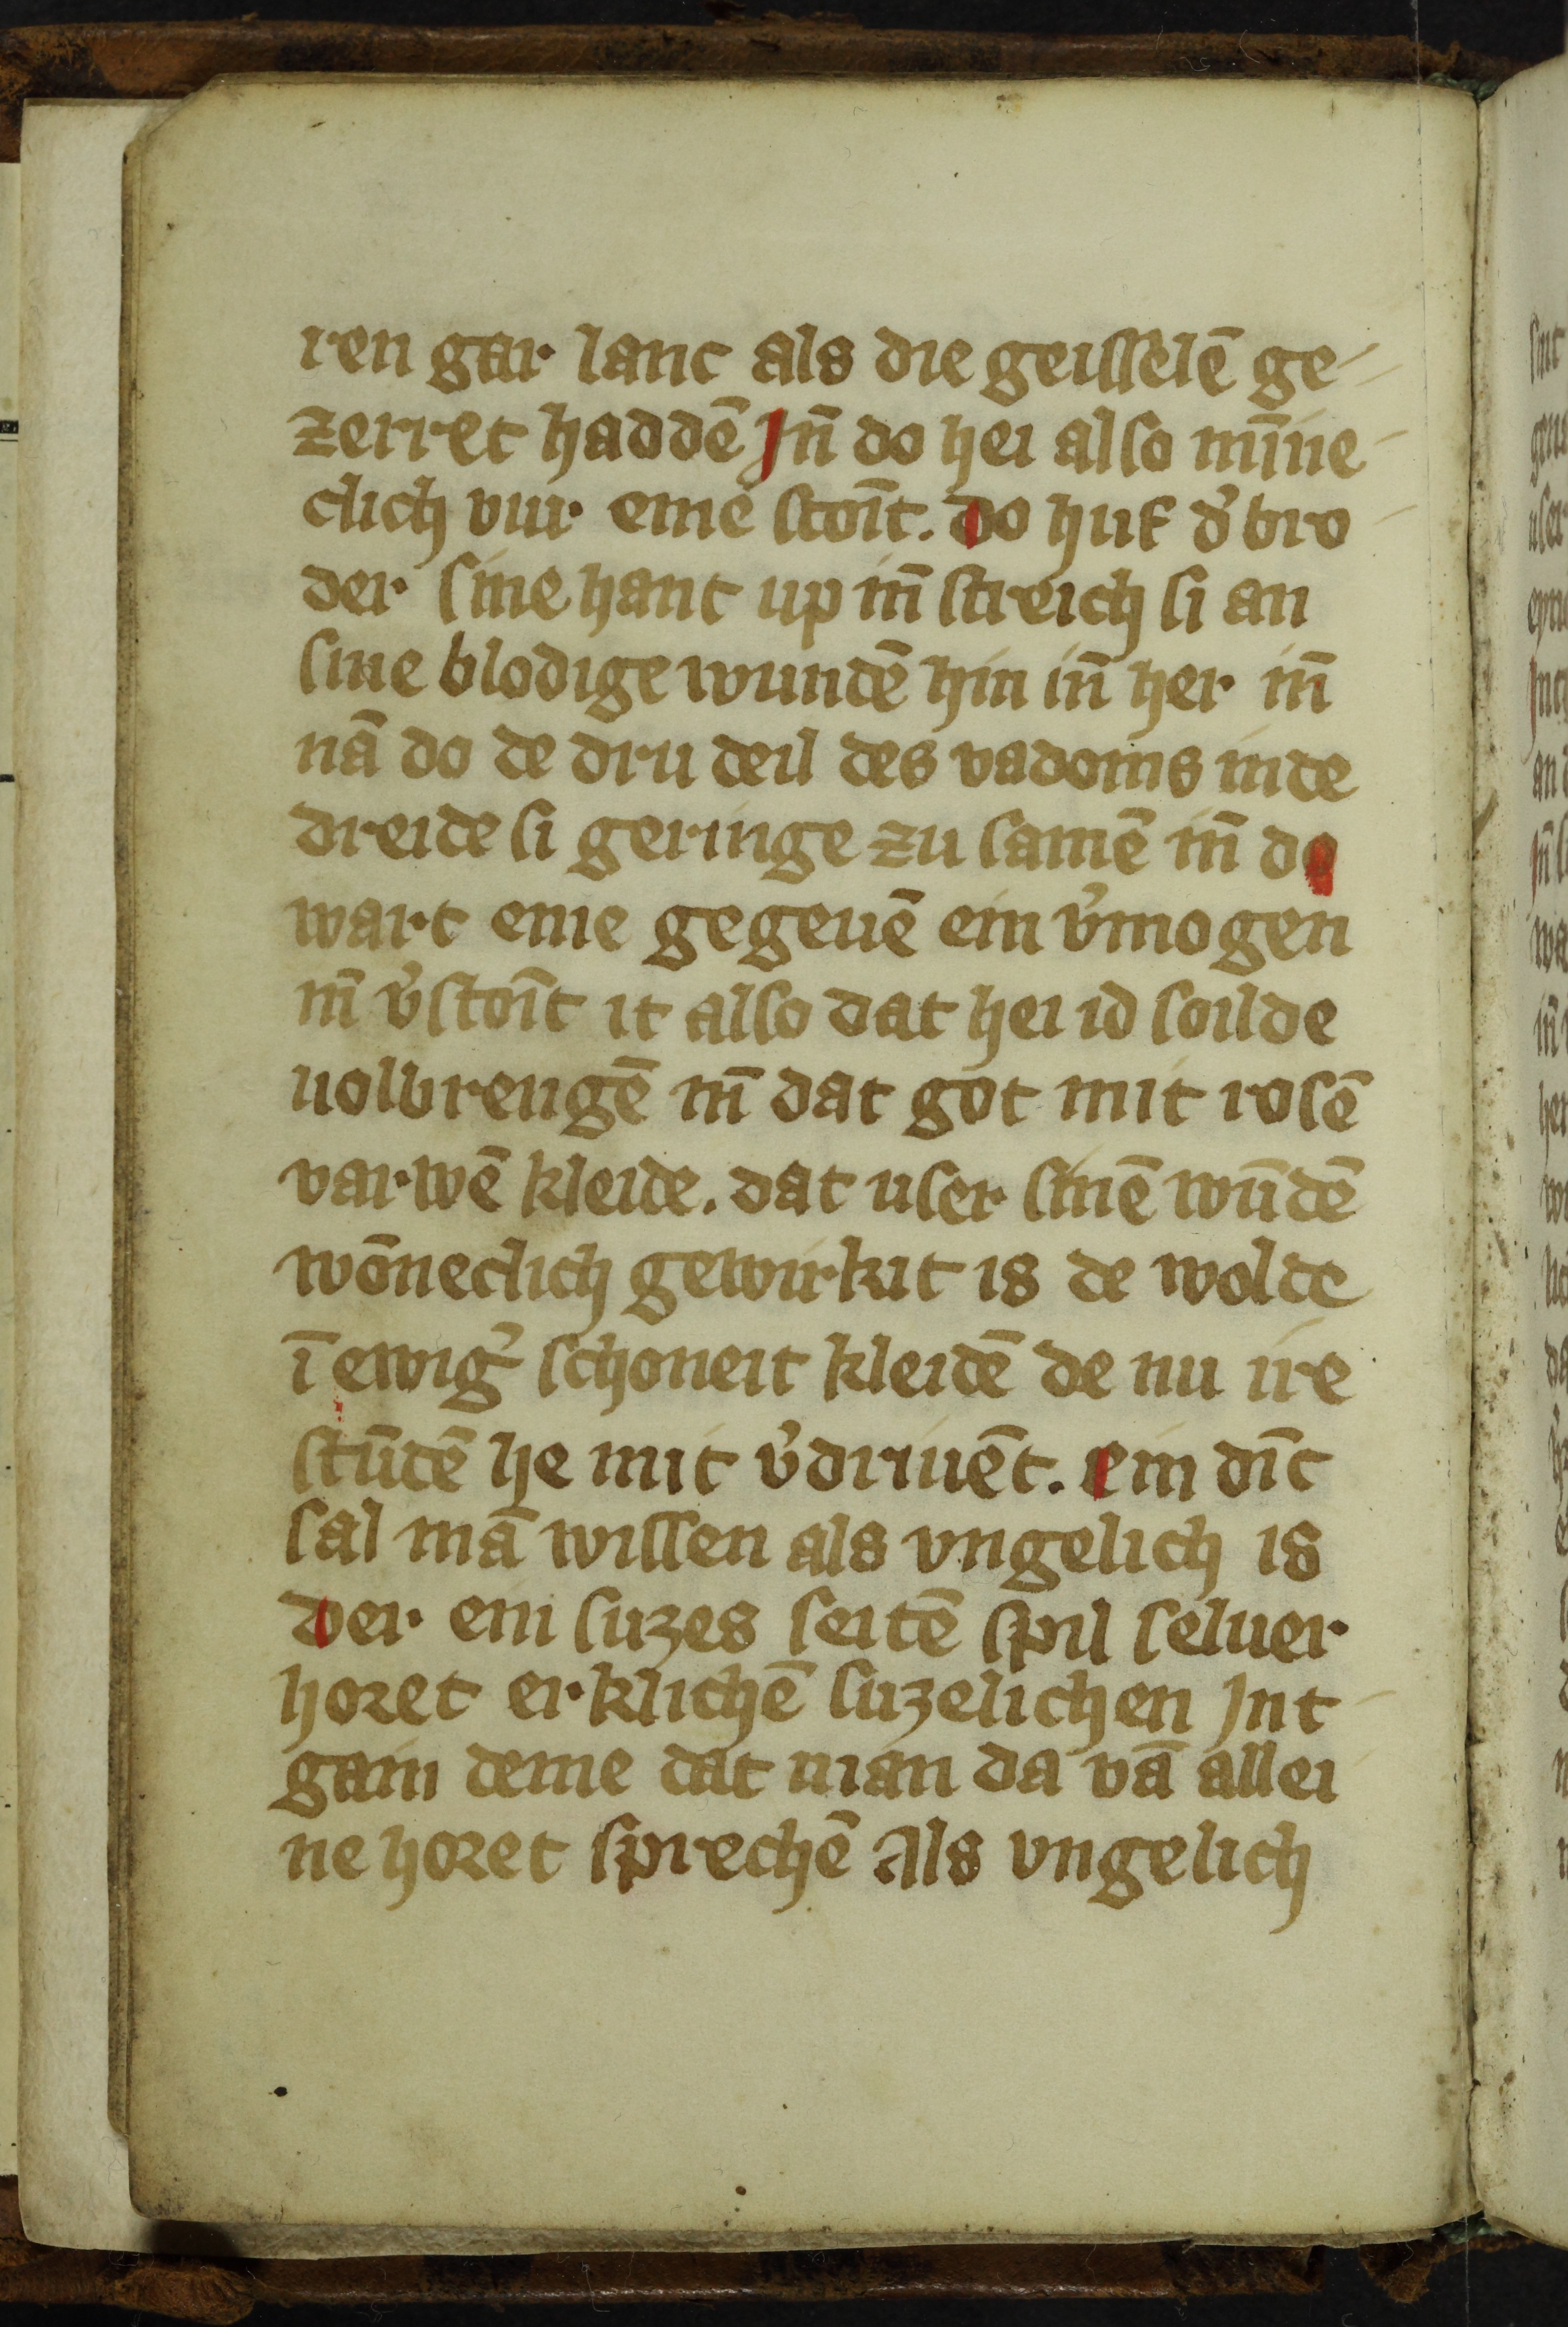 ren gar lanc als die geisselē ge-
zerret haddē Jn̄ do hei also mi̅ne-
clich vur eme stoīt. do huf d᾽ bro-
der sine hant up in̄ streich si an
sine blodige wundē hin in̄ her in̄
nā do de dru deil des vadoms inde
dreide si geringe zu samē in̄ do
wart eme gegeuē ein v᾽mogen
in̄ v᾽stoīt it also dat hei id soilde
uolbrengē in̄ dat got mit rosē
varwē kleide. dat user sinē wūdē
wōneclich gewirkit is de wolde
ī ewig᾽ schoneit kleidē de nu ire
stūdē he mit v᾽driuēt. ein dīc
sal mā wissen als vngelich is
der ein suzes seitē spil seluer
horet erklichē suzelichen Jnt-
gain deme dat man da vā allei
ne horet sprechē Als vngelich